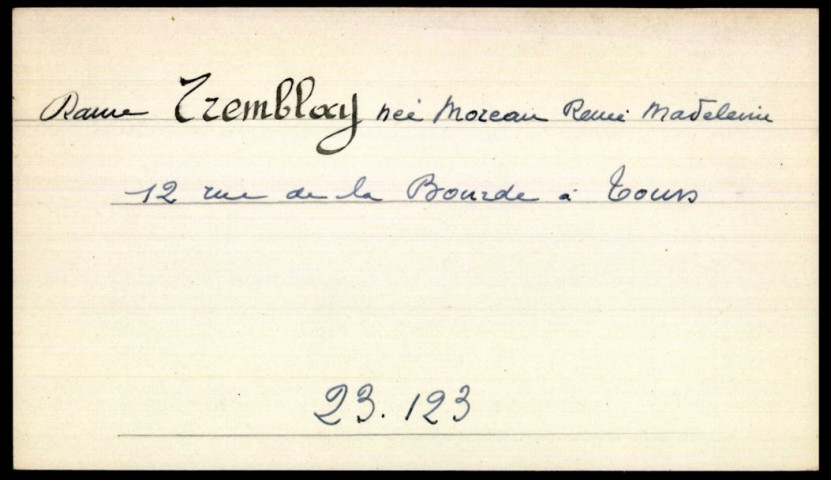 Dame Tremblay neé Moreau Renée Madeleine
12 rue de la Bourde à Tours
23.123